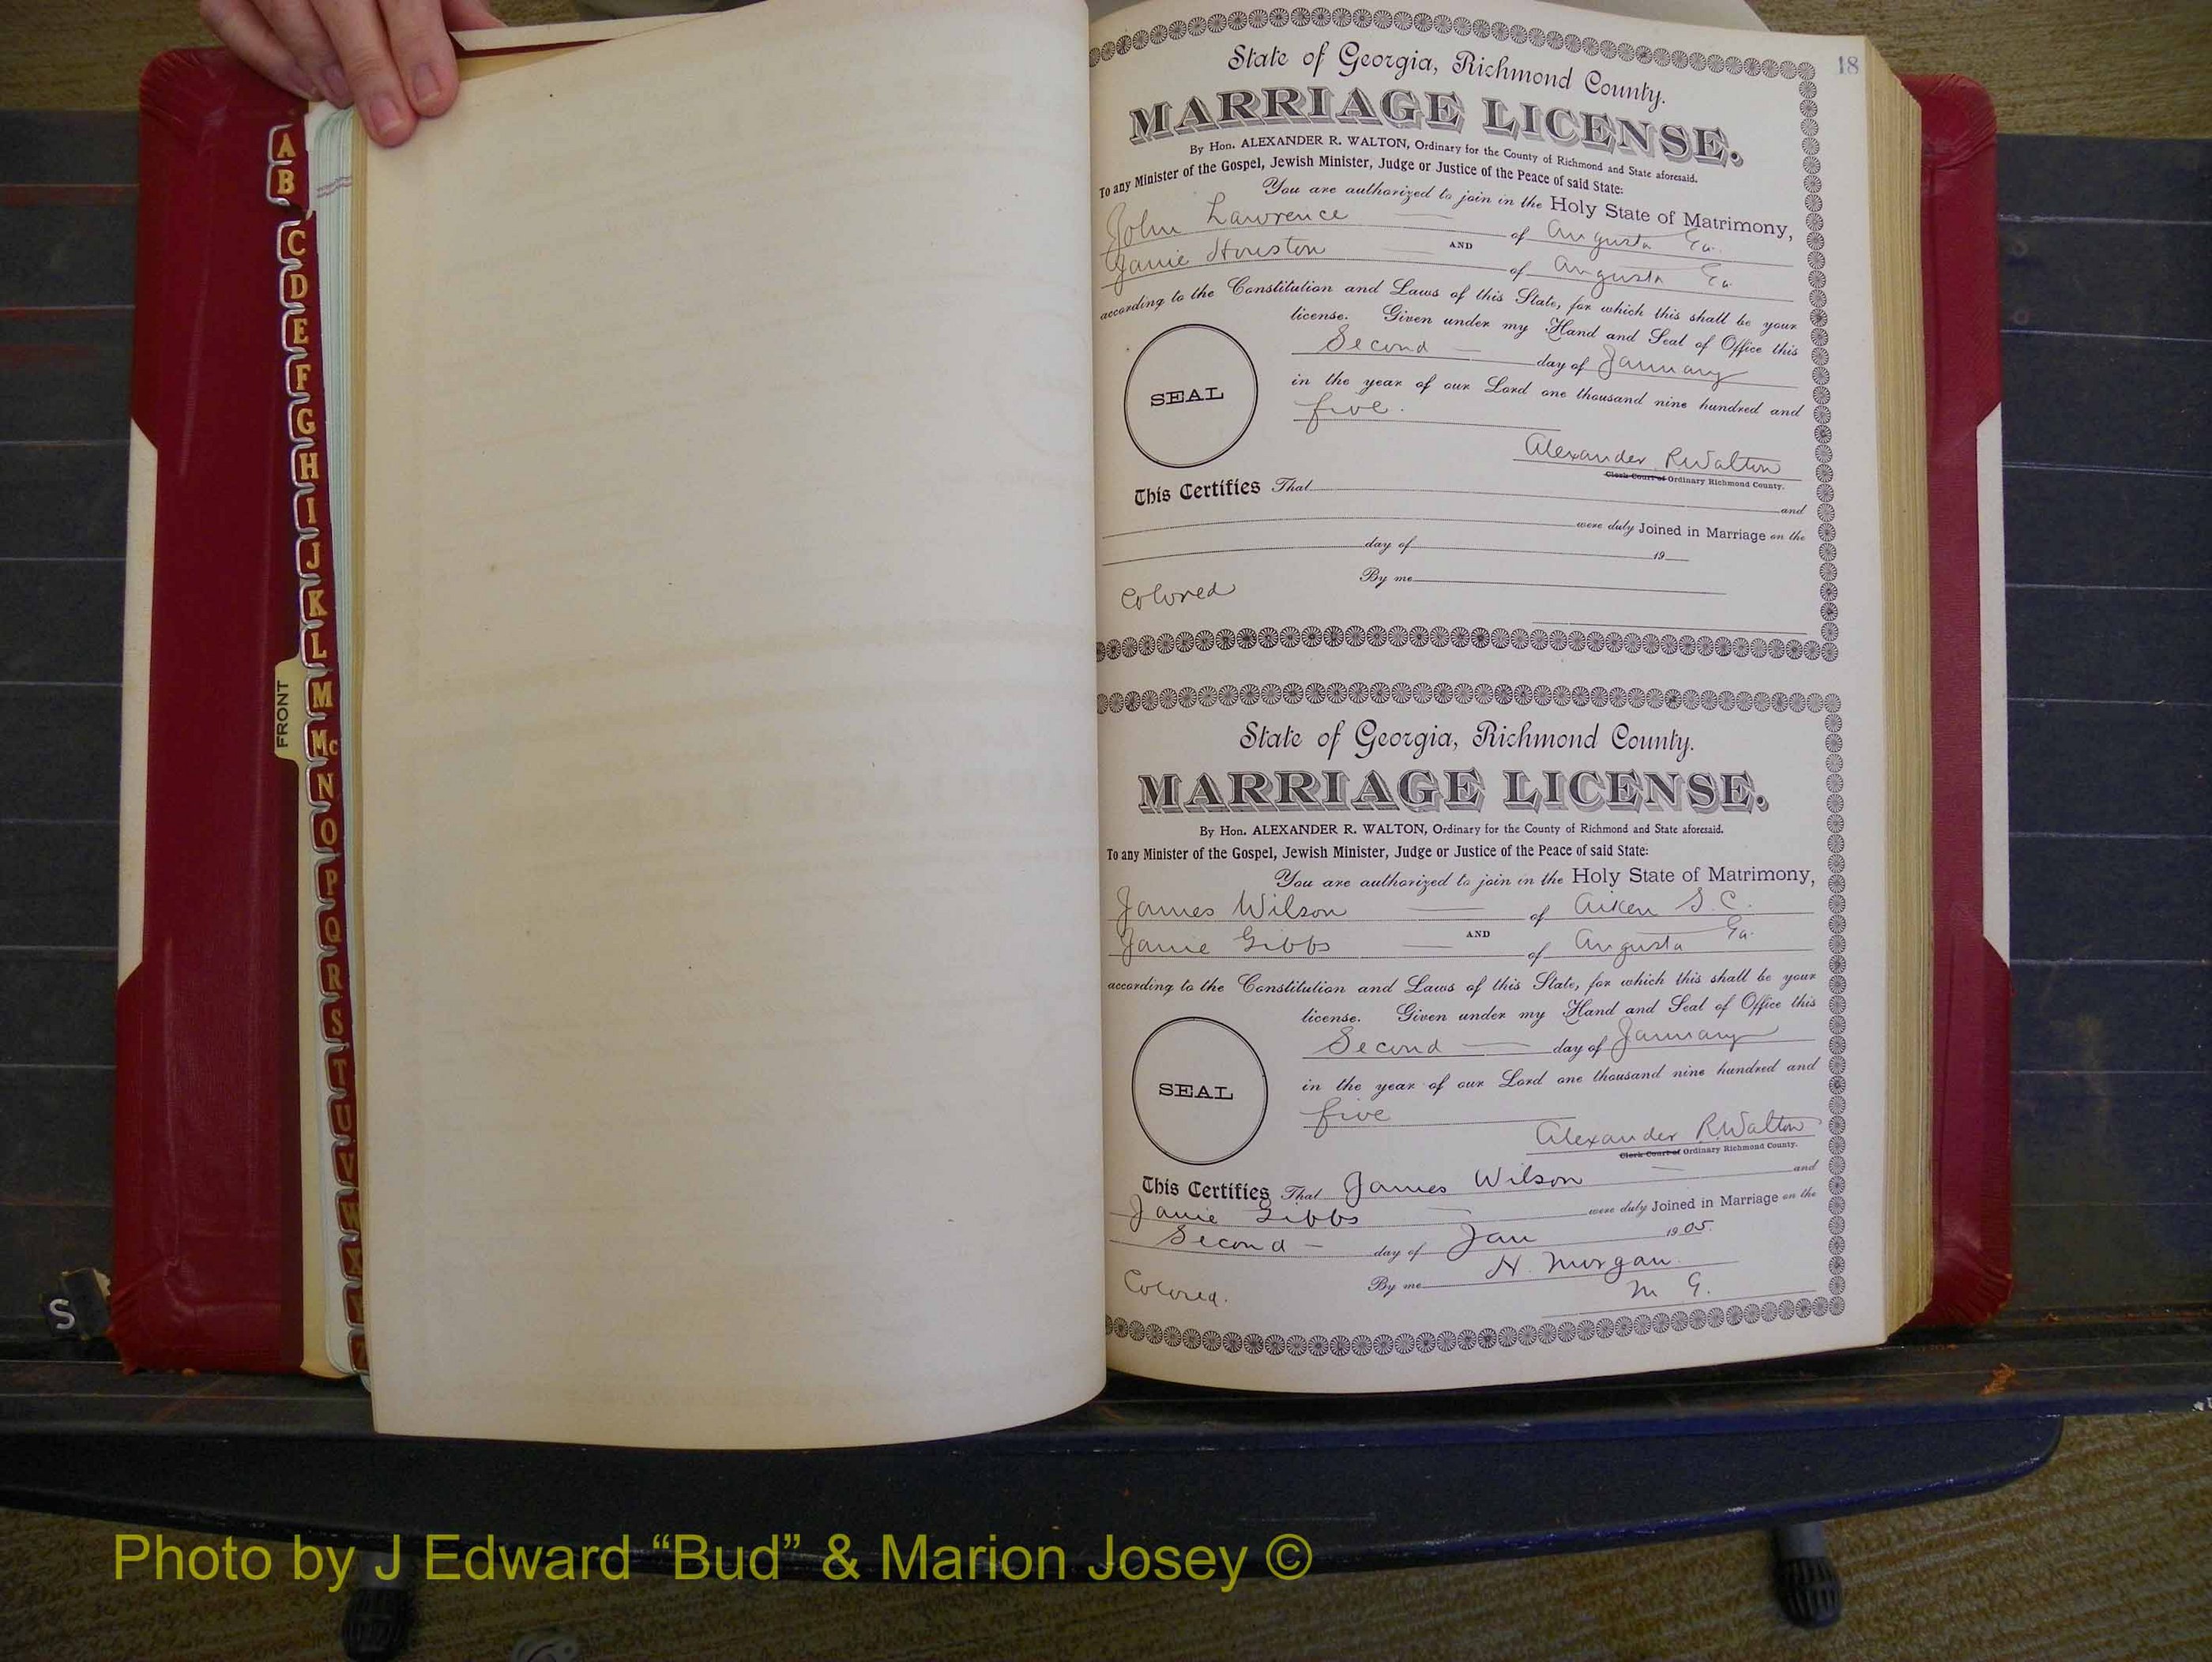 A
B
C
D
E
F
G
H
I
J
K
L
M
Mc
N
O
P
Q
R
S
T
U
V
W
X
FRONT
18
State of Georgia, Richmond County.
MARRIAGE LICENSE.
By Hon. ALEXANDER R. WALTON, Ordinary for the County of Richmond and State aforesaid.
To any Minister of the Gospel, Jewish Minister, Judge or Justice of the Peace of said State:
You are authorized to join in the Holy State of Matrimony,
John Lawrence of Augusta Ga.
AND
Janie Houston of Augusta Ga
according to the Constitution and Laws of this State, for which this shall be your
license. Given under my Hand and Seal of Office this
Second day of January
in the year of our Lord one thousand nine hundred and
five.
SEAL
Alexander R Walton
Clerk Court of Ordinary Richmond County.
This Certifies That and
were duly Joined in Marriage on the
day of 19
By me
Colored
State of Georgia, Richmond County.
MARRIAGE LICENSE.
By Hon. ALEXANDER R. WALTON, Ordinary for the County of Richmond and State aforesaid.
To any Minister of the Gospel, Jewish Minister, Judge or Justice of the Peace of said State:
You are authorized to join in the Holy State of Matrimony,
James Wilson of Aiken S.C.
AND
Janie Gibbs of Augusta Ga.
according to the Constitution and Laws of this State, for which this shall be your
license. Given under my Hand and Seal of Office this
Second day of January
in the year of our Lord one thousand nine hundred and
five
SEAL
Alexander R. Walton
Clerk Court of Ordinary Richmond County.
This Certifies That James Wilson and
Janie Gibbs were duly Joined in Marriage on the
Second day of Jan 1905.
By me H. Morgan
M G.
Colored.
S
Photo by J Edward “Bud” & Marion Josey ©